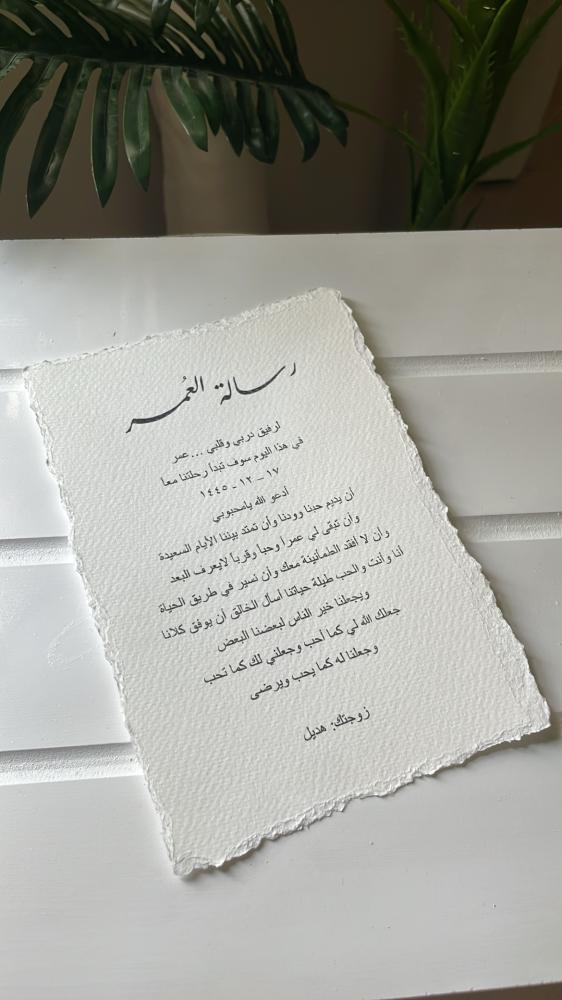 رسالة العُمـر
لرفيق دربي وقلبي ... عمر
في هذا اليوم سوف تبدأ رحلتنا معا
١٧ – ١٢ - ١٤٤٥
أدعو الله يامحبوبي
أن يديم حبنا وودنا وأن تمتد بيننا الأيام السعيدة
وأن تبقى لي عمراً وحباً وقرباً لايعرف البعد
وأن لا أفقد الطمأنينة معك وأن نسير في طريق الحياة
أنا وأنت والحب طيلة حياتنا أسأل الخالق أن يوفق كلانا
ويجعلنا خير الناس لبعضنا البعض
جعلك الله لي كما أحب وجعلني لك كما تحب
وجعلنا له كما يحب ويرضى
زوجتك: هديل